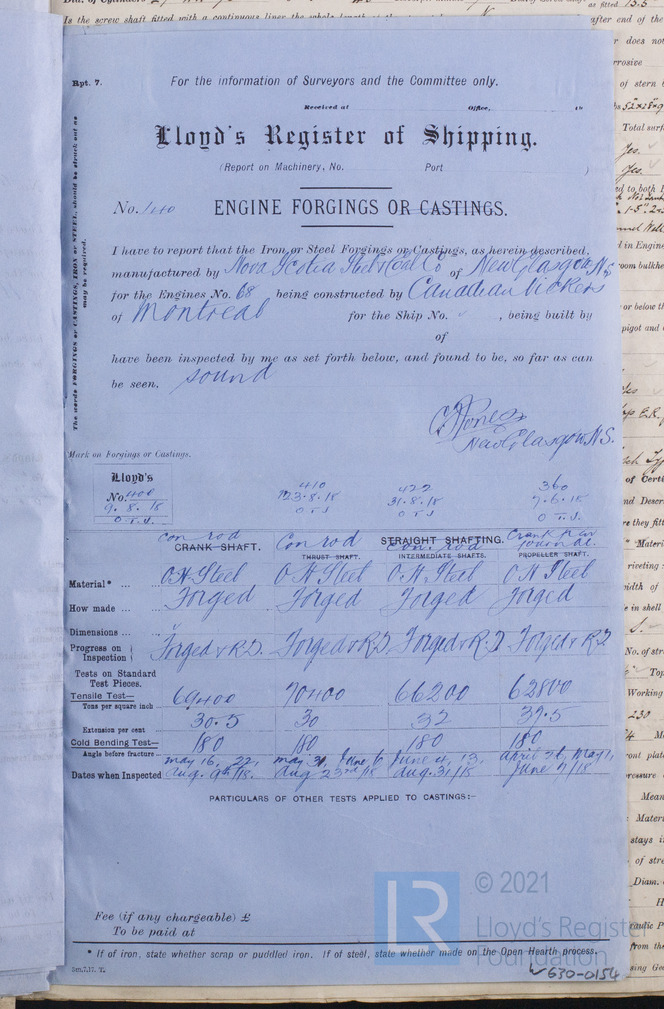 Is the screw shaft fitted with a continuous liner the whole length of the
as fitted 13.5
after end of the
Rpt. 7.
For the information of Surveyors and the Committee only.
Received at Office, 19
Lloyd's Register of Shipping.
(Report on Machinery, No. Port )
No. 1240 ENGINE FORGINGS OR CASTINGS.
The words FORGINGS or CASTINGS, IRON or STEEL, should be struck out as
may be required.
I have to report that the Iron or Steel Forgings or Castings, as herein described,
manufactured by Nova Scotia Steel & Coal Co of New Glasgow N.S.
for the Engines No. 68 being constructed by Canadian Vickers
of Montreal for the Ship No. , being built by
of
have been inspected by me as set forth below, and found to be, so far as can
be seen. sound
New Glasgow N.S.
Mark on Forgings or Castings.
Lloyd's
No. 400
9.8.18
O.T.J.
410
23.8.18
O T J
422
31.8.18
O T J
360
7.6.18
O T J
Con rod Con rod STRAIGHT SHAFTING. Crank shaft
CRANK SHAFT. THRUST SHAFT. Con. rod INTERMEDIATE SHAFTS. PROPELLER SHAFT.
Material* ... O H Steel O H Steel O H Steel O H Steel
How made ... Forged Forged Forged Forged
Dimensions ...
Progress on Inspection Forged & R.T. Forged & R.T. Forged & R.T. Forged & R.T.
Tests on Standard
Test Pieces.
Tensile Test— 69400 70400 66200 62800
Tons per square inch
Extension per cent 30.5 30 32 39.5
Cold Bending Test— 180 180 180 180
Angle before fracture
May 16, 22, May 31, June 6 June 4, 13, April 26, May 1,
Dates when Inspected Aug. 9th/18. Aug 23rd/18 Aug. 31/18 June 7/18
PARTICULARS OF OTHER TESTS APPLIED TO CASTINGS:—
Fee (if any chargeable) £
To be paid at
* If of iron, state whether scrap or puddled iron. If of steel, state whether made on the Open Hearth process.
5m,7,17. T.
W630-0154
LR
© 2021
Lloyd's Register
Foundation
does not
of stern
Total surf
Yes.
Yes.
d in Engine
room bulkhe
or below th
pigot and
of Certi
re they fitt
riveting :
idth of
e in shell
No. of str
Top
Working
230
pressure
Mean
Mater
stays i
of stre
Diam.
from the